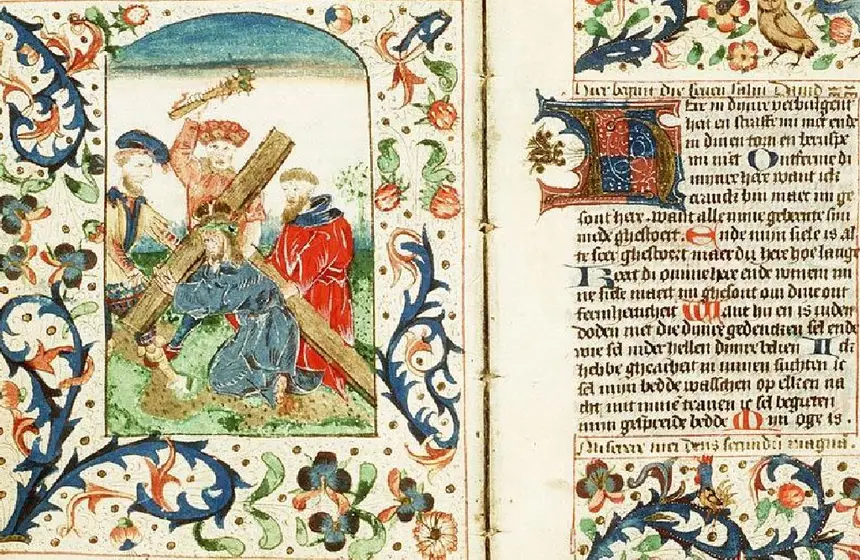 hier begint die seuen salm dauid
Here in dinre verbolgent
heit en straffe mi niet ende
in dinen torn en berispe
mi niet Ontferme di
minre here want ick
cranck bin maect mi ge
sont here. want alle mine gebeente sin
mede ghestoert. Ende mijn siele is al
te seer ghestoert maer du here hoe lange
Keert di omme here ende wtnem mi
ne siele maect mi ghesont om dine ont
fermherticheit Want hi en is inden
doden niet die dinre gedencken sel ende
wie sel inder hellen dinre belien Ick
hebbe ghearbeit in minen suchten ic
sel mijn bedde wasschen op elken na
cht mit mine tranen ic sel begieten
mijn gespreide bedde Mijn oge is .
Miserere mei deus secundum magnam.